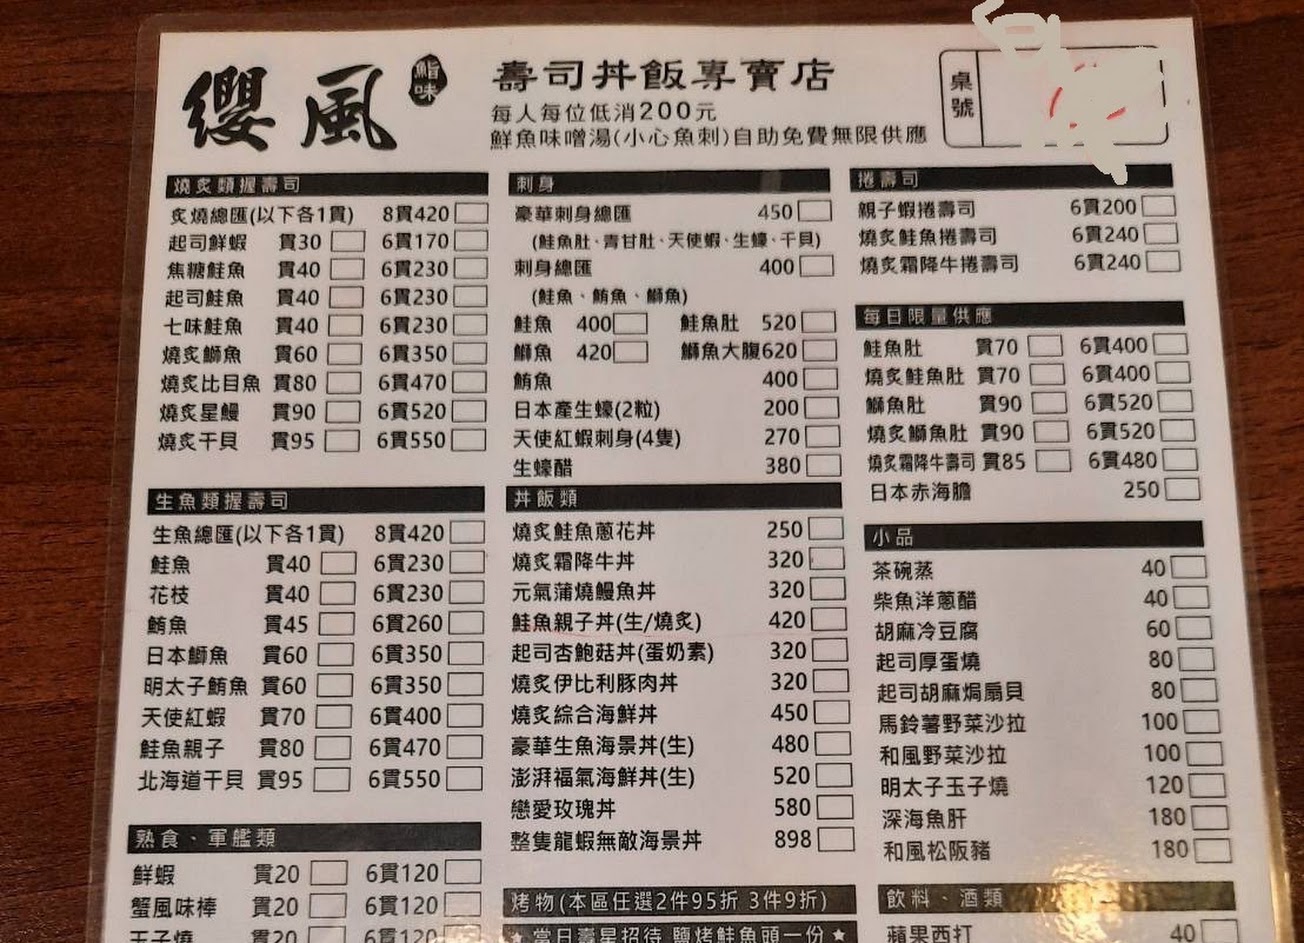 纓風 鮨味
壽司丼飯專賣店
每人每位低消200元
鮮魚味噌湯(小心魚刺)自助免費無限供應
桌號
燒炙類握壽司
炙燒總匯(以下各1貫) 8貫420
起司鮮蝦 貫30 6貫170
焦糖鮭魚 貫40 6貫230
起司鮭魚 貫40 6貫230
七味鮭魚 貫40 6貫230
燒炙鰤魚 貫60 6貫350
燒炙比目魚 貫80 6貫470
燒炙星鰻 貫90 6貫520
燒炙干貝 貫95 6貫550
生魚類握壽司
生魚總匯(以下各1貫) 8貫420
鮭魚 貫40 6貫230
花枝 貫40 6貫230
鮪魚 貫45 6貫260
日本鰤魚 貫60 6貫350
明太子鮪魚 貫60 6貫350
天使紅蝦 貫70 6貫400
鮭魚親子 貫80 6貫470
北海道干貝 貫95 6貫550
熟食、軍艦類
鮮蝦 貫20 6貫120
蟹風味棒 貫20 6貫120
玉子燒 貫20 6貫120
刺身
豪華刺身總匯 450
(鮭魚肚、青甘肚、天使蝦、生蠔、干貝)
刺身總匯 400
(鮭魚、鮪魚、鰤魚)
鮭魚 400 鮭魚肚 520
鰤魚 420 鰤魚大腹620
鮪魚 400
日本產生蠔(2粒) 200
天使紅蝦刺身(4隻) 270
生蠔醋 380
丼飯類
燒炙鮭魚蔥花丼 250
燒炙霜降牛丼 320
元氣蒲燒鰻魚丼 320
鮭魚親子丼(生/燒炙) 420
起司杏鮑菇丼(蛋奶素) 320
燒炙伊比利豚肉丼 320
燒炙綜合海鮮丼 450
豪華生魚海景丼(生) 480
澎湃福氣海鮮丼(生) 520
戀愛玫瑰丼 580
整隻龍蝦無敵海景丼 898
烤物(本區任選2件95折 3件9折)
★當日壽星招待 鹽烤鮭魚頭一份★
捲壽司
親子蝦捲壽司 6貫200
燒炙鮭魚捲壽司 6貫240
燒炙霜降牛捲壽司 6貫240
每日限量供應
鮭魚肚 貫70 6貫400
燒炙鮭魚肚 貫70 6貫400
鰤魚肚 貫90 6貫520
燒炙鰤魚肚 貫90 6貫520
燒炙霜降牛壽司 貫85 6貫480
日本赤海膽 250
小品
茶碗蒸 40
柴魚洋蔥醋 40
胡麻冷豆腐 60
起司厚蛋燒 80
起司胡麻焗扇貝 80
馬鈴薯野菜沙拉 100
和風野菜沙拉 100
明太子玉子燒 120
深海魚肝 180
和風松阪豬 180
飲料、酒類
蘋果西打 40